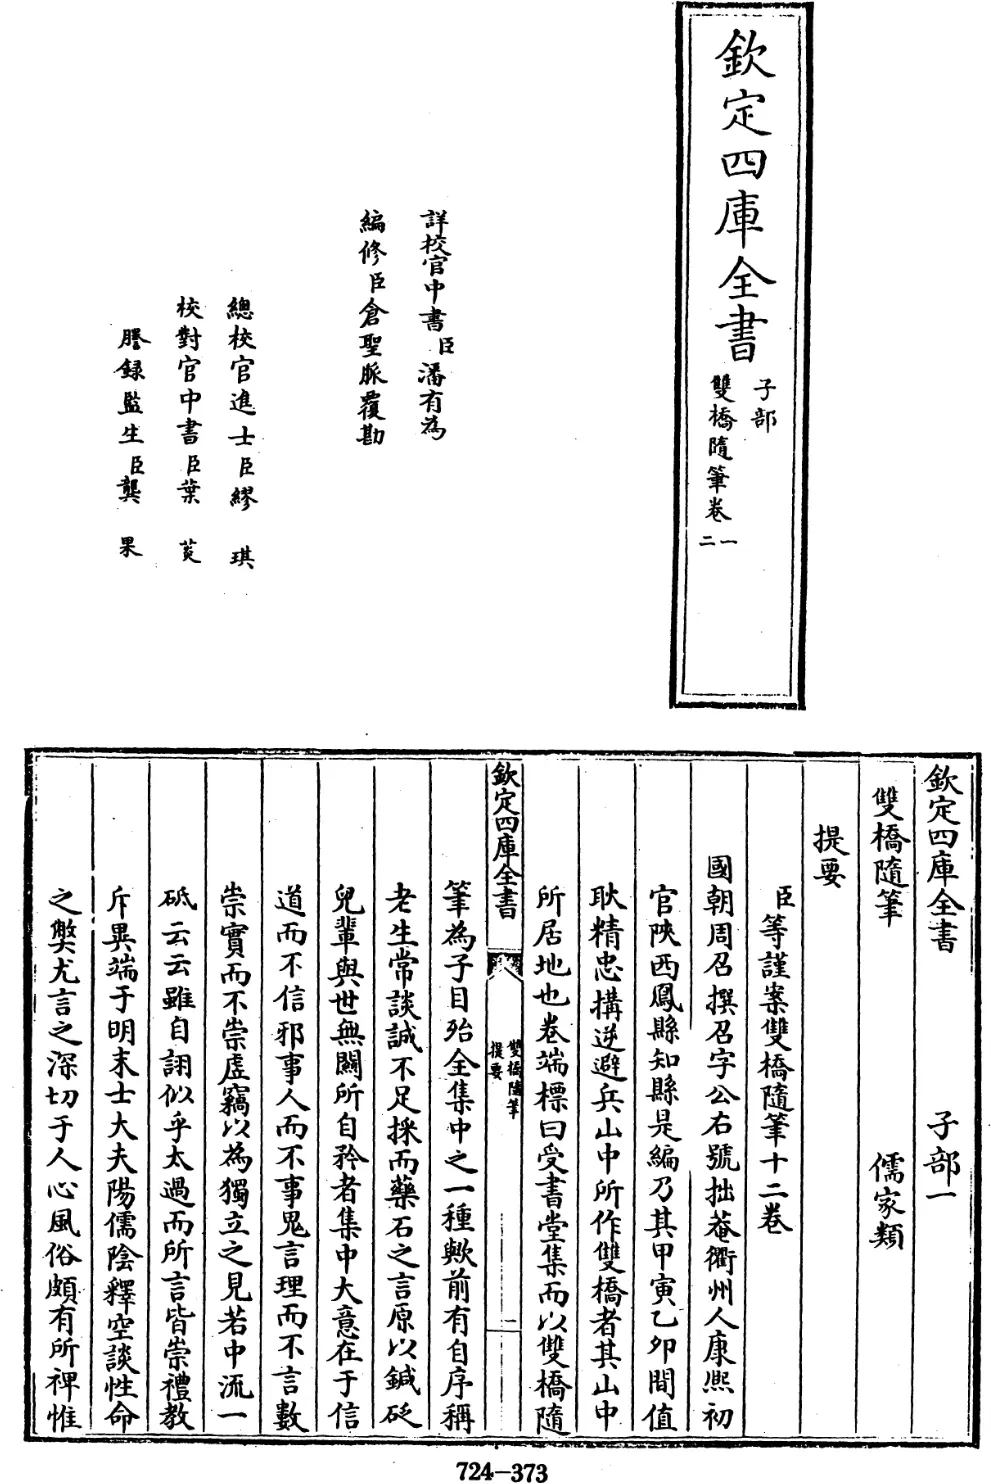 欽定四庫全書
子部
雙橋隨筆卷一二
詳校官中書臣潘有為
編修臣倉聖脈覆勘
總校官進士臣繆琪
校對官中書臣葉菼
謄録監生臣龔果
欽定四庫全書 子部一
雙橋隨筆 儒家類
提要
臣等謹案雙橋隨筆十二卷
國朝周召撰召字公右號拙菴衢州人康熙初
官陝西鳳縣知縣是編乃其甲寅乙卯間值
耿精忠構逆避兵山中所作雙橋者其山中
所居地也卷端標曰受書堂集而以雙橋隨
欽定四庫全書
雙橋隨筆
提要
一
筆為子目殆全集中之一種歟前有自序稱
老生常談誠不足採而藥石之言原以鍼砭
兒輩與世無關所自矜者集中大意在于信
道而不信邪事人而不事鬼言理而不言數
崇實而不崇虛竊以為獨立之見若中流一
砥云云雖自詡似乎太過而所言皆崇禮教
斥異端于明末士大夫陽儒陰釋空談性命
之弊尤言之深切于人心風俗頗有所裨惟
724-373